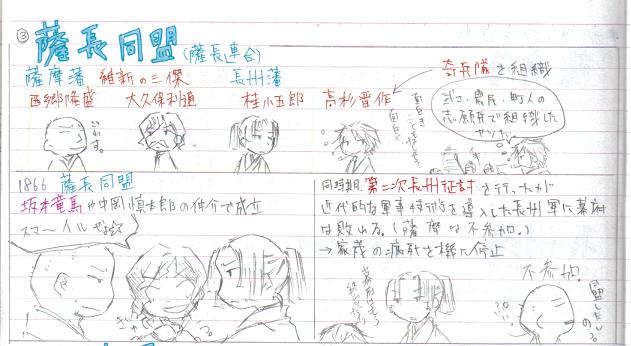 ③ 薩長同盟(薩長連合)
薩摩藩 維新の三傑 長州藩
西郷隆盛 大久保利通 桂小五郎 高杉晋作
奇兵隊を組織
武士、農民、町人の
志願兵で組織した
ごわす。
1866 薩長同盟
坂本竜馬や中岡慎太郎の仲介で成立
スマ〜イルぜよ☆
同時期、第二次長州征討を行ったが
近代的な軍事技術を導入した長州軍に幕府
は敗れる。(薩摩は不参加。)
→家茂の病死を機に停止
不参加。
同盟したしのぅ。